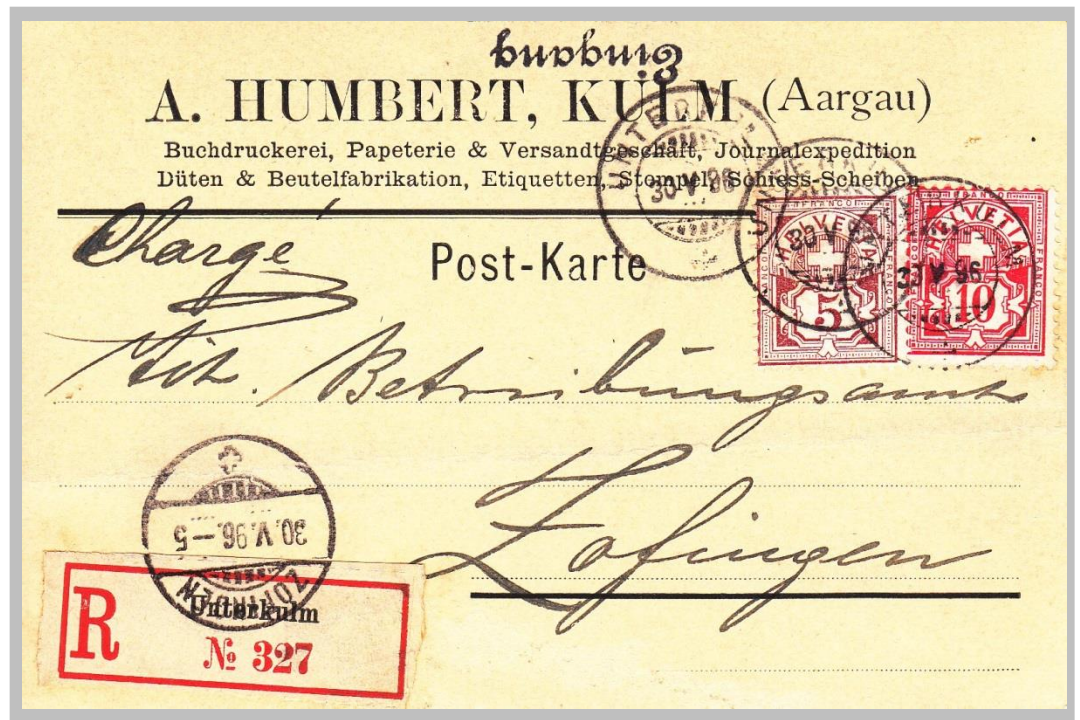 Eingang
A. HUMBERT, KULM (Aargau)
Buchdruckerei, Papeterie & Versandtgeschäft, Journalexpedition
Düten & Beutelfabrikation, Etiquetten, Stempel, Schiess-Scheiben
Chargé
Post-Karte
UNTERKULM
30 V 96
FRANCO
HELVETIA
5
FRANCO
HELVETIA
10
30 V 96
Tit. Betreibungsamt
Zofingen
30. V. 96. – 5
ZOFINGEN
R
Unterkulm
№ 327